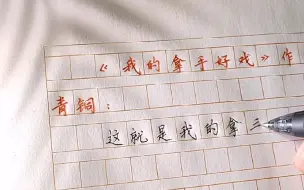 《我的拿手好戏》作
青铜：
这就是我的拿